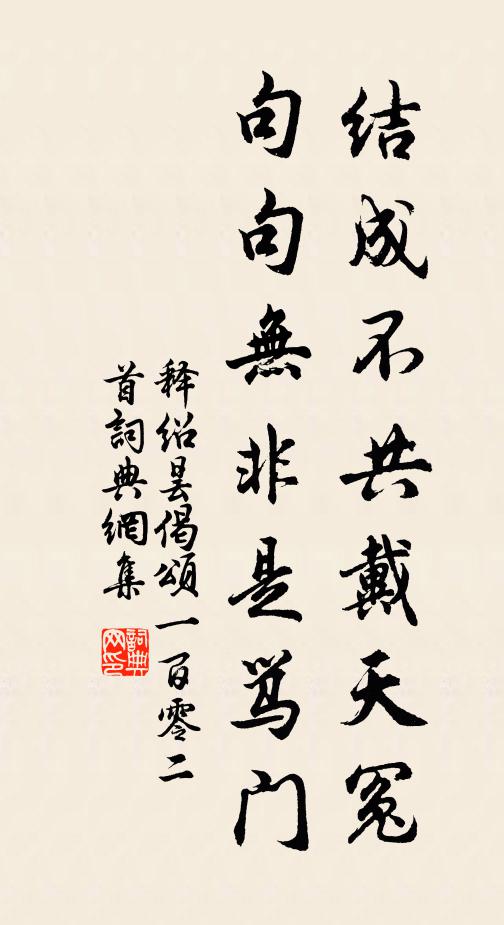 结成不共戴天冤
句句無非是骂门
释绍昙偈頌一百零二
首詞典網集
詞典网印